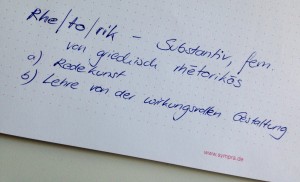 Rhe/to/rik – Substantiv, fem.
von griechisch rhētorikós
a) Redekunst
b) Lehre von der wirkungsvollen Gestaltung